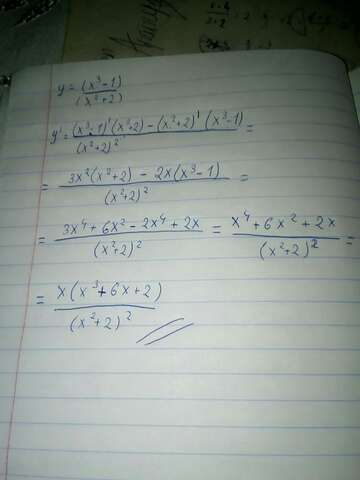 y = (x³-1) / (x²+2)
y' = (x³-1)'(x²+2) - (x²+2)'(x³-1) / (x²+2)² =
= 3x²(x²+2) - 2x(x³-1) / (x²+2)² =
= 3x⁴+6x²-2x⁴+2x / (x²+2)² = x⁴+6x²+2x / (x²+2)² =
= x(x³+6x+2) / (x²+2)²